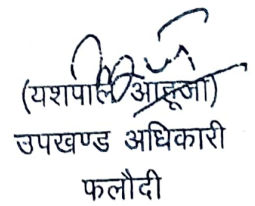 (यशपाल आहूजा)
उपखण्ड अधिकारी
फलौदी